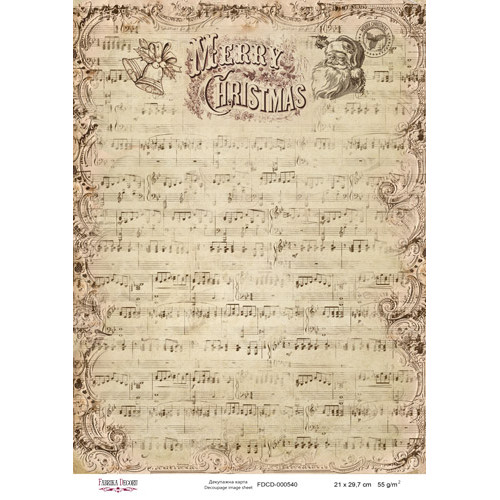 MERRY
CHRISTMAS
FABRIKA DECORU
Декупажна карта
Decoupage image sheet
FDCD-000540
21 x 29,7 cm
55 g/m²